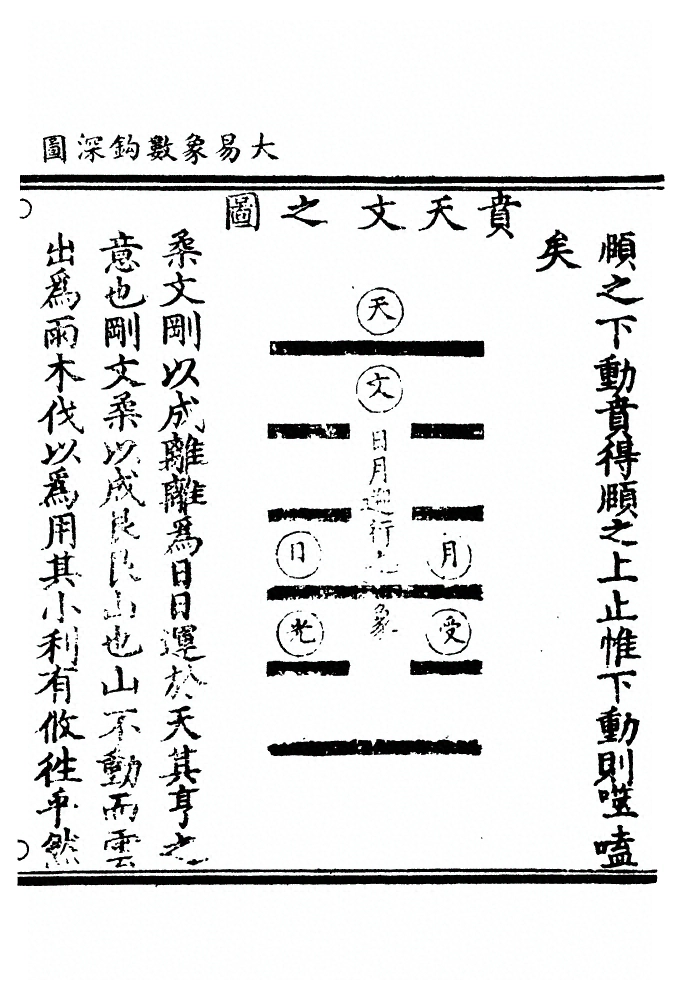 大易象數鈎深圖
頤之下動賁得頤之上止惟下動則噬嗑
矣
賁天文之圖
天
文
日月迎行之象
月
日
受
光
柔文剛以成離離為日日運於天其亨之
意也剛文柔以成艮艮山也山不動而雲
出爲雨木伐以爲用其小利有攸徃乎然